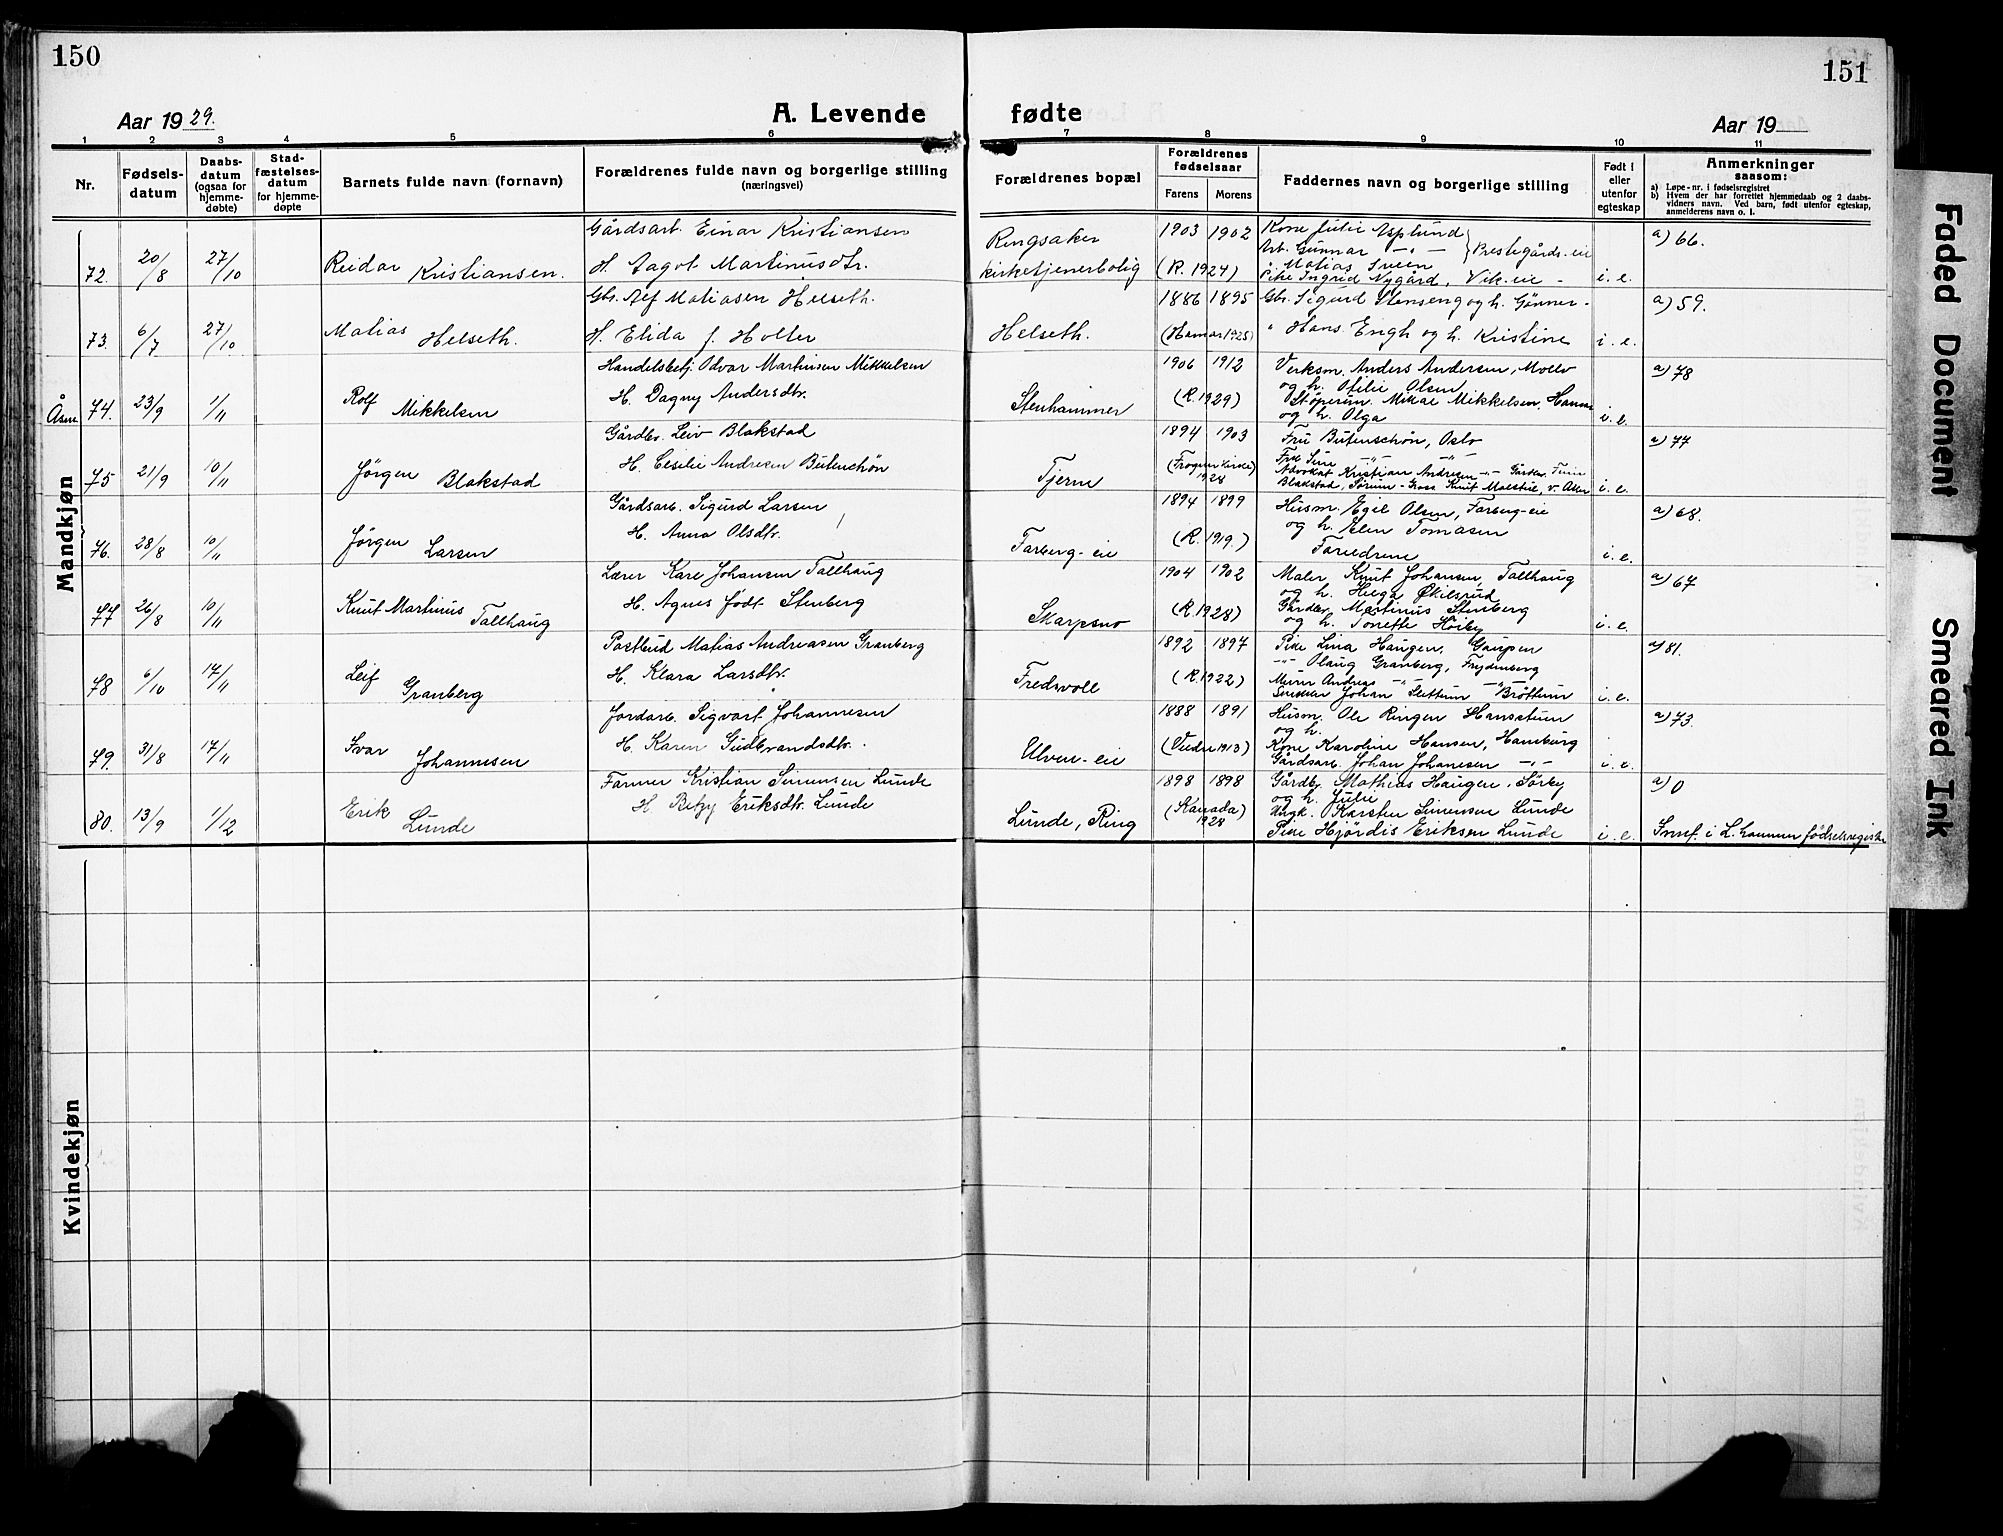 150
151
Aar 1929.
A. Levende fødte
Aar 19
1 2 3 4 5 6 7 8 9 10 11
Nr.
Fødsels-
datum
Daabs-
datum
(ogsaa for
hjemme-
døbte)
Stad-
fæstelses-
datum
for hjemme-
døpte
Barnets fulde navn (fornavn)
Forældrenes fulde navn og borgerlige stilling
(næringsvei)
Forældrenes bopæl
Forældrenes
fødselsaar
Farens Morens
Faddernes navn og borgerlige stilling
Født i
eller
utenfor
egteskap
Anmerkninger
saasom:
a) Løpe-nr. i fødselsregistret
b) Hvem der har forrettet hjemmedaab og 2 daabs-
vidners navn. Ved barn, født utenfor egteskap,
anmelderens navn o. l.
Mandkjøn
72. 20/8 27/10 Reidar Kristiansen.
Gårdsarb. Einar Kristiansen
H. Aagot Martinusdtr.
Ringsaker
kirketjenerbolig
1903 1902
(R. 1924)
Kone Julie Asplund
Arb. Gunnar -"-
" Matias Sveen
Prestegårds-eie
Pike Ingrid Nygård, Vik-eie -
i. e.
a) 66.
73. 6/7 27/10 Matias Helseth.
Gbr. Alf Matiasen Helseth.
H. Elida f. Holter
Helseth.
1886 1895
(Hamar 1925)
Gbr. Sigurd Stenseng og h. Gunner -
" Hans Engh og h. Kristine
i. e.
a) 59.
Åsm. 74. 23/9 1/11 Rolf Mikkelsen
Handelsbetj. Odvar Martinsen Mikkelsen
H. Dagny Andersdtr.
Stenhammer
1906 1912
(R. 1929)
Verksm. Anders Andersen, Moelv
og h. Otilie Olsen
Mikkelsen, Hamar
og h. Olga
i. e.
a) 78
75 21/9 10/11 Jørgen Blakstad
Gårdbr. Leiv Blakstad
H. Cesilie Andresen Butenschøn
Tjerne
1894 1903
(Frogner kirke)
1928
Fru Butenschøn, Oslo
Advokat Kristian Andresen -"-
Blakstad, Sørum -
i. e.
a) 77
76. 28/8 10/11 Jørgen Larsen
Gårdsarb. Sigurd Larsen
H. Anna Olsdtr.
Farberg-eie
1894 1899
(R. 1919.)
Husm. Egil Olsen, Farberg-eie
og h. Elen Tomasen
Foreldrene
i. e.
a) 68.
77 26/8 10/11 Knut Martinus Tallhaug
Lærer Kare Johansen Tallhaug
H. Agnes født Stenberg
Skarpsno
1904 1902
(R. 1928)
Maler Knut Johansen, Tallhaug
og h. Helga Økilsrud
Gårdbr. Martinus Stenberg
og h. Tonette Høiby
i. e.
a) 67
78 6/10 17/11 Leif Granberg
Postbud Matias Andreasen Granberg
H. Klara Larsdtr.
Fredsvoll
1892 1897
(R. 1922)
Pike Lina Haugen, Gaupen
-"- Olaug Granberg, Frydenberg
Murer Andreas -"- -"-
Snekker Johan Slettum - Brøttum
i. e.
a) 81.
79. 31/8 17/11 Ivar Johannesen
Jordarb. Sigvart Johannesen
H. Karen Gudbrandsdtr.
Ulven-eie
1888 1891
(Veldre 1913)
Husm. Ole Ringen Hansstuen
og h.
Kone Karoline Hansen, Hamburg
Gårdsarb. Johan Johansen -"-
i. e.
a) 73.
80. 13/9 1/12 Erik Lunde
Farmer Kristian Simensen Lunde
H. Betzy Eriksdtr. Lunde
Lunde, Ring
1898 1898
(Kanada)
1928
Gårdb. Mathias Haugen, Sørby
og h. Julie
Ungk. Karsten Simensen Lunde
Pike Hjørdis Eriksen Lunde
i. e.
a) 0
Innf. i L.hammer fødselsregister
Kvindekjøn
Faded Document
Smeared Ink